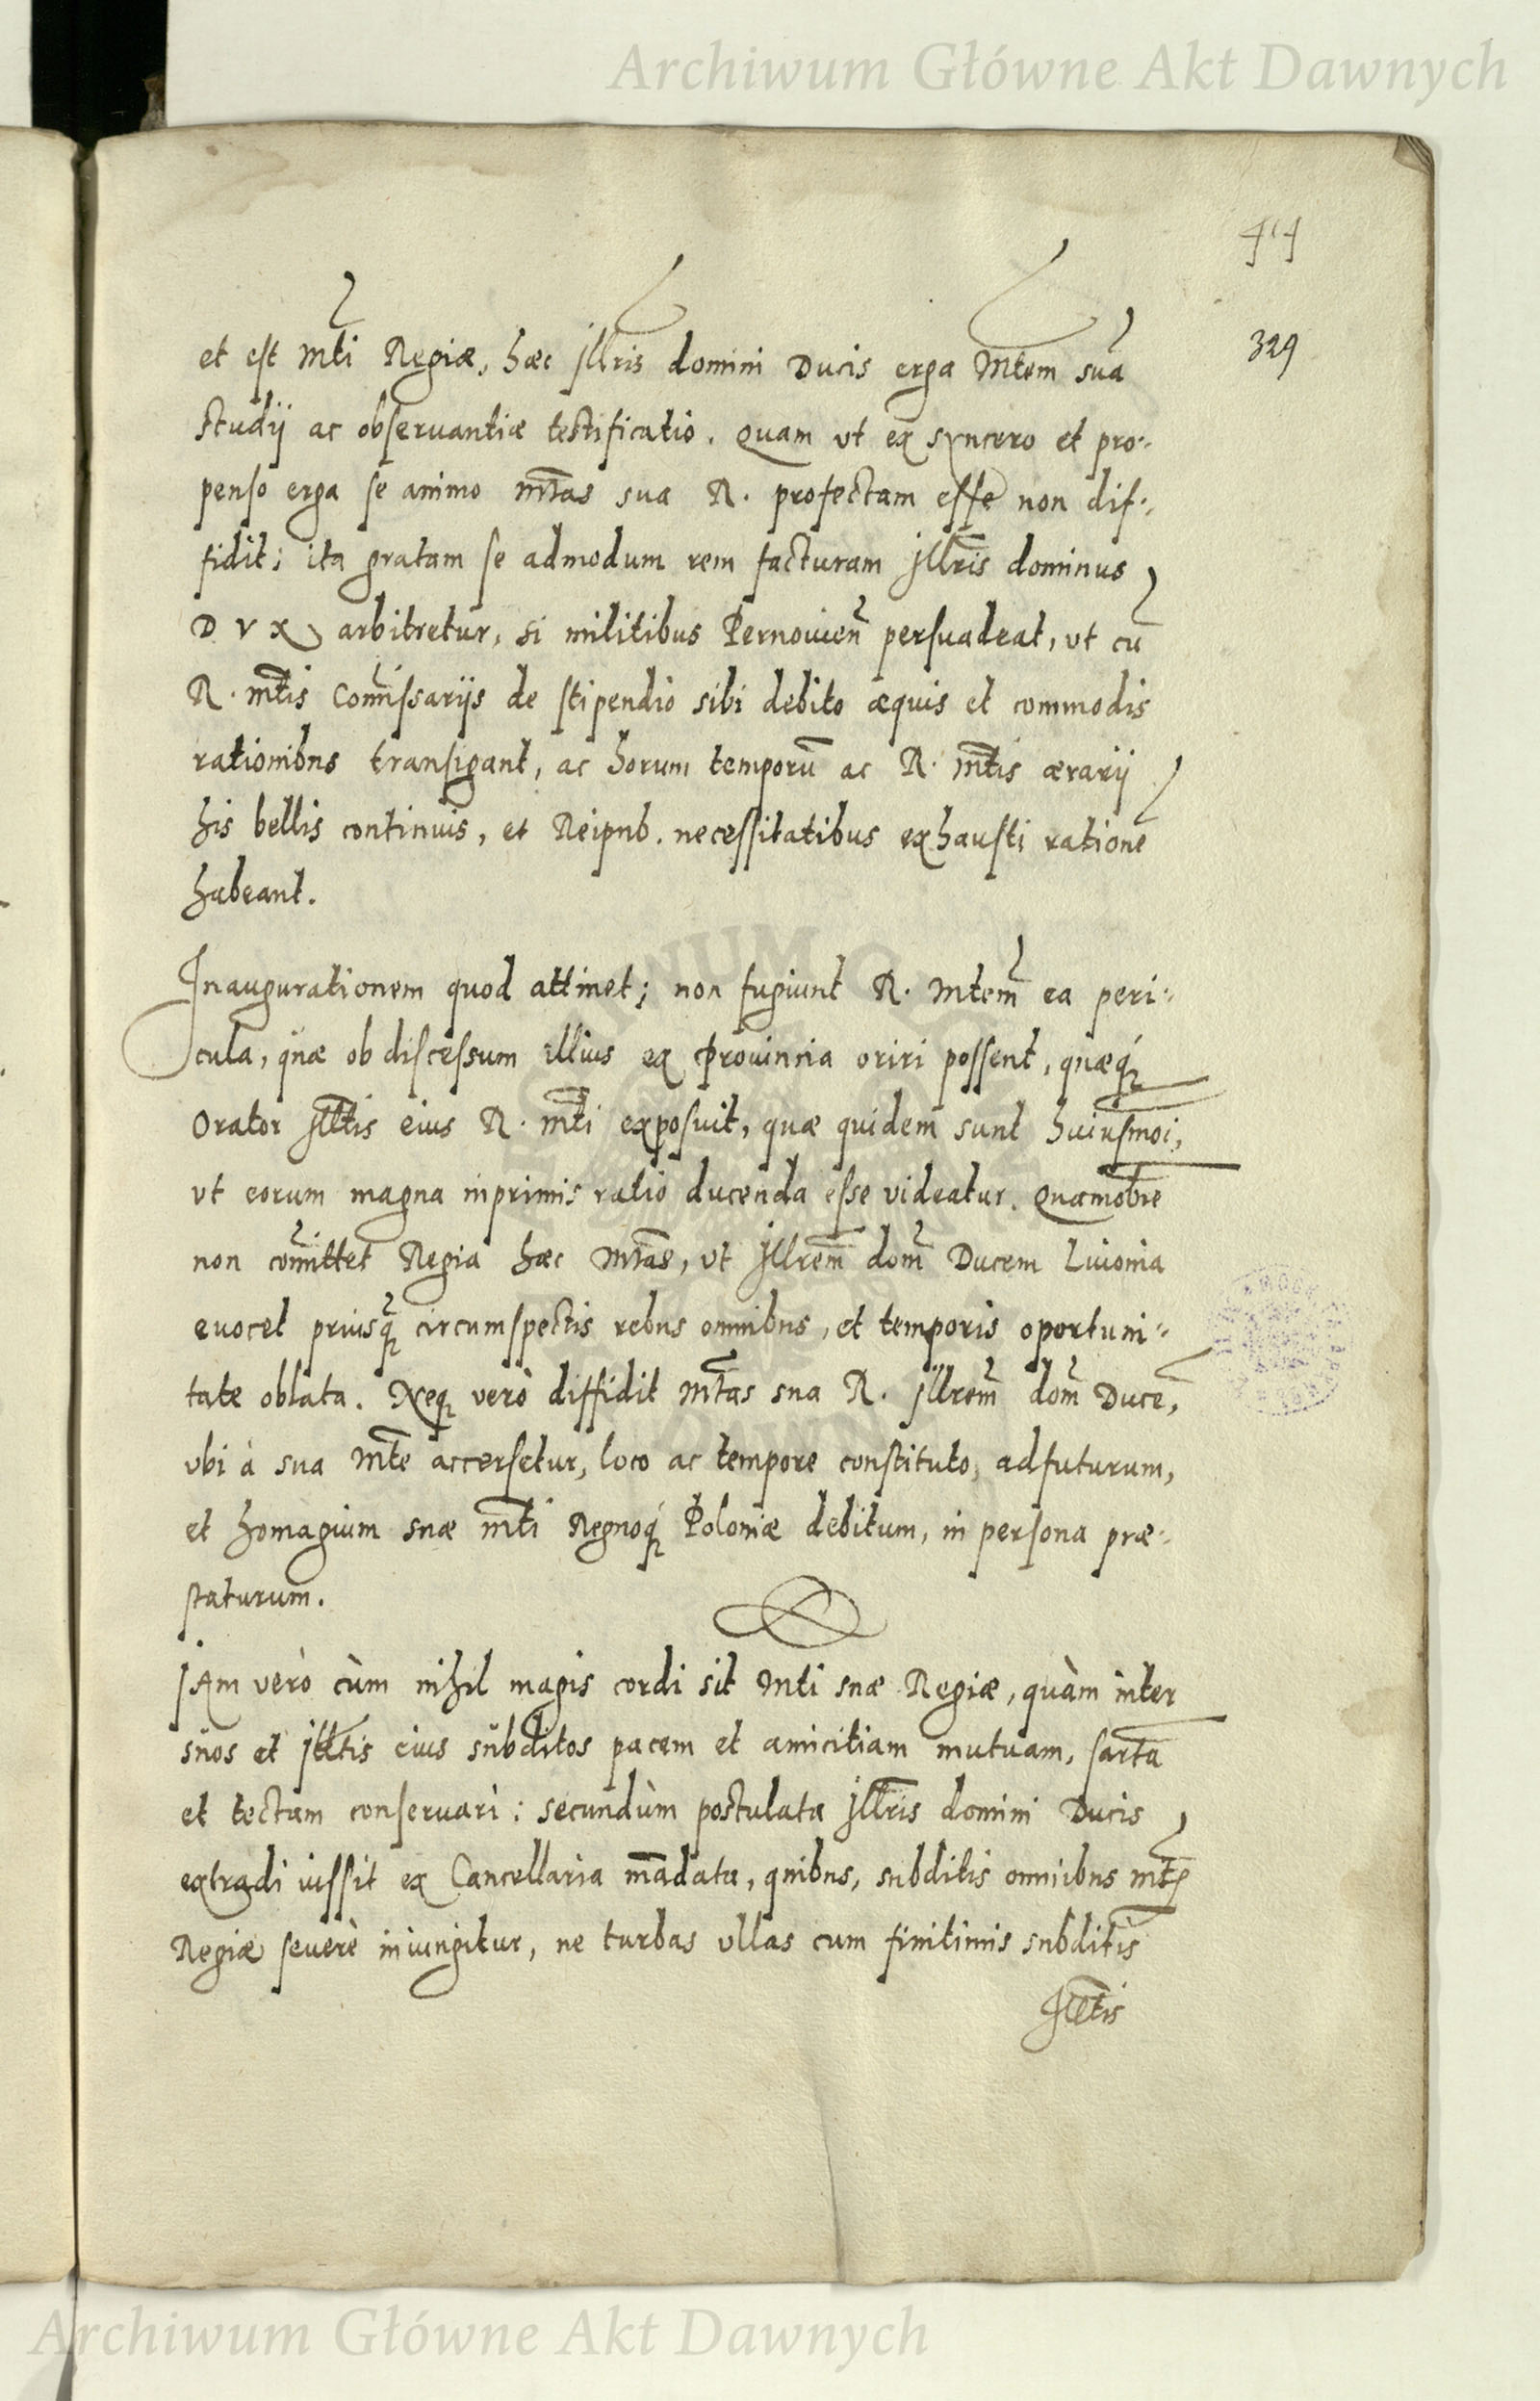 Archiwum Główne Akt Dawnych
329
et est Mti Regiæ, hæc Jllris domini Ducis erga Mtem suã
studij ac obseruantiæ testificatio. Quam vt ex syncero et pro-
penso erga se animo Mtas sua R. profectam esse non dif-
fidit; ita gratam se admodum rem facturam Jllris dominus
DVX arbitretur, si militibus Pernouien̄ persuadeat, vt cū
R. Mtis Com̄issarijs de stipendio sibi debito æquis et commodis
rationibus transigant, ac horum temporū ac R. Mtis ærarij
his bellis continuis, et Reipub. necessitatibus exhausti rationē
habeant.
Inaugurationem quod attinet; non fugiunt R. Mtem ea peri-
cula, quæ ob discessum illius ex Prouincia oriri possent, quæq́
Orator Jlltis eius R. Mti exposuit, quæ quidem sunt huiusmoi,
vt eorum magna inprimis ratio ducenda esse videatur. Quamobrē
non com̄ittet Regia hæc Mtas, vt Jllrem dom̄ Ducem Liuonia
euocet priusq̃ circumspectis rebus omnibus, et temporis oportuni-
tate oblata. Neq verò diffidit Mtas sua R. Jllrem dom̄ Ducē,
vbi à sua Mte accersetur, loco ac tempore constituto, adfuturum,
et homagium suæ Mti Regnoq́ Poloniæ debitum, in persona præ-
staturum.
JAm verò cùm nihil magis cordi sit Mti suæ Regiæ, quàm inter
suos et Jlltis eius subditos pacem et amicitiam mutuam, sartā
et tectam conseruari: secundùm postulata Jllris domini Ducis
extradi iussit ex Cancellaria mādata, quibus, subditis omnibus Mtis
Regiæ seuerè iniungitur, ne turbas vllas cum finitimis subditis
Jlltis
Archiwum Główne Akt Dawnych